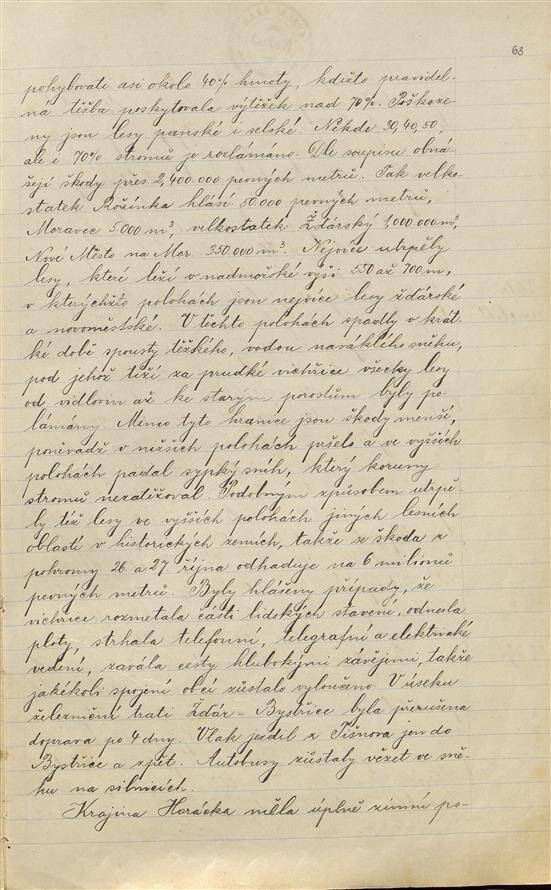 68
pohybovati asi okolo 40% hmoty, kdežto pravidel-
ná těžba poskytovala výtěžek nad 70%. Poškoze-
ny jsou lesy panské i selské. Někde 30, 40, 50,
ale i 70% stromů je rozlámáno. Dle soupisu obná-
šejí škody přes 2,400.000 pevných metrů. Tak velko-
statek Rožínka hlásí 50.000 pevných metrů,
Moravec 5000 m³, velkostatek Žďárský 1,000.000 m³,
Nové Město na Mor. 350.000 m³. Nejvíce utrpěly
lesy, které leží v nadmořské výši 550 až 700 m,
v kterýchžto polohách jsou nejvíce lesy žďárské
a novoměstské. V těchto polohách spadly v krát-
ké době spousty těžkého, vodou nasáklého sněhu,
pod jehož tíží za prudké vichřice všecky lesy
od vidloun až ke starým porostům byly po-
lámány. Mimo tyto hranice jsou škody menší,
poněvadž v nižších polohách pršelo a ve vyšších
polohách padal sypký sníh, který koruny
stromů nezatěžoval. Podobným způsobem utrpě-
ly též lesy ve vyšších polohách jiných lesních
oblastí v historických zemích, takže se škoda z
pohromy 26. a 27. října odhaduje na 6 milionů
pevných metrů. Byly hlášeny případy, že
vichřice rozmetala části lidských stavení, odnesla
ploty, strhala telefonní, telegrafní a elektrické
vedení, zaváła cesty hlubokými závějemi, takže
jakékoli spojení obcí zůstalo vyloučeno. V úseku
železniční trati Žďár - Bystřice byla přerušena
doprava po 4 dny. Vlak jezdil z Tišnova jen do
Bystřice a zpět. Autobusy zůstaly vězet ve sně-
hu na silnicích.
Krajina Horácka měla úplně zimní po-